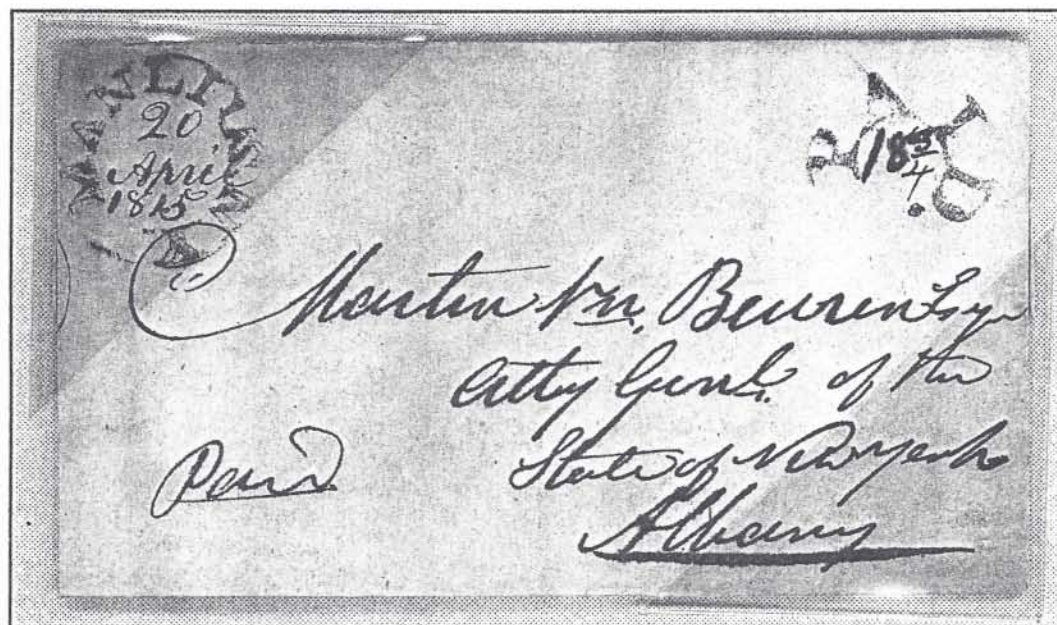 MANLIUS
20
April
1815
PAID.
18 3/4
Martin Vn. Beuren Esqr
Atty Genl. of the
Paid
State of New York
Albany